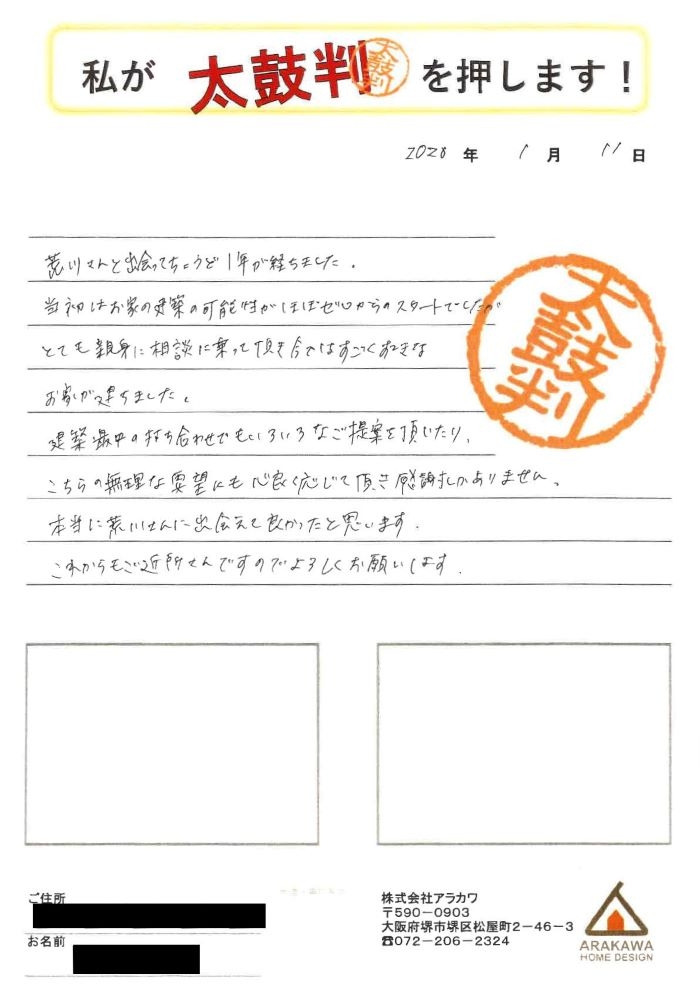 私が 太鼓判 太鼓判 を押します!
2020 年 1 月 11 日
荒川さんと出会ってちょうど1年が経ちました。
当初はお家の建築の可能性がほぼゼロからのスタートでしたが
とても親身に相談に乗って頂き今ではすごくすてきな
お家が建ちました。
建築最中の打ち合わせでもいろいろなご提案を頂いたり、
こちらの無理な要望にも心良く応じて頂き感謝しかありません。
本当に荒川さんに出会えて良かったと思います.
これからもご近所さんですのでよろしくお願いします.
太鼓判
ご住所
お名前
株式会社アラカワ
〒590-0903
大阪府堺市堺区松屋町2-46-3
☎072-206-2324
ARAKAWA
HOME DESIGN